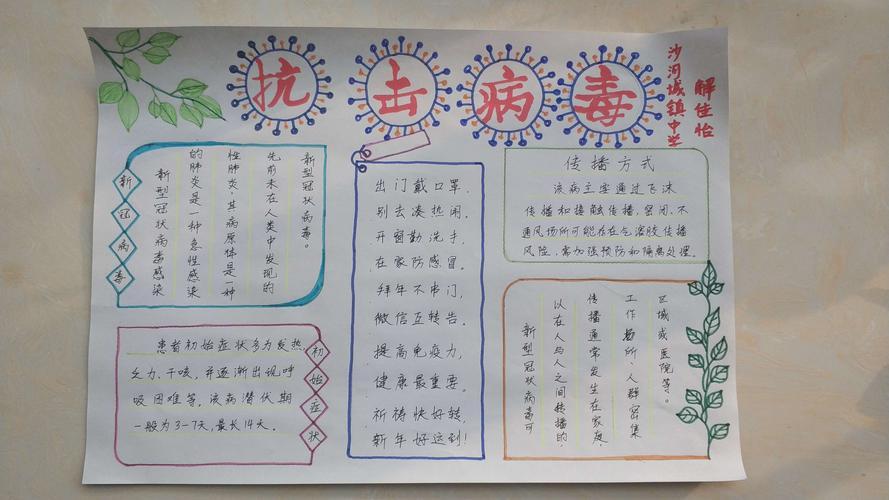 抗击病毒
沙河城镇中学
解佳怡
新冠病毒
新型冠状病毒感染
的肺炎是一种急性感染
性肺炎,其病原体是一种
先前未在人类中发现的
新型冠状病毒。
患者初始症状多为发热、
乏力、干咳,并逐渐出现呼
吸困难等,该病潜伏期
一般为3-7天,最长14天。
初始症状
出门戴口罩,
别去凑热闹。
开窗勤洗手,
在家防感冒。
拜年不串门,
微信互转告。
提高免疫力,
健康最重要。
祈祷快好转,
新年好运到!
传播方式
该病主要通过飞沫
传播和接触传播,密闭、不
通风场所可能存在气溶胶传播
风险,需加强预防和隔离处理。
新型冠状病毒可
以在人与人之间传播的,
传播通常发生在家庭、
工作场所、人群密集
区域或医院等。